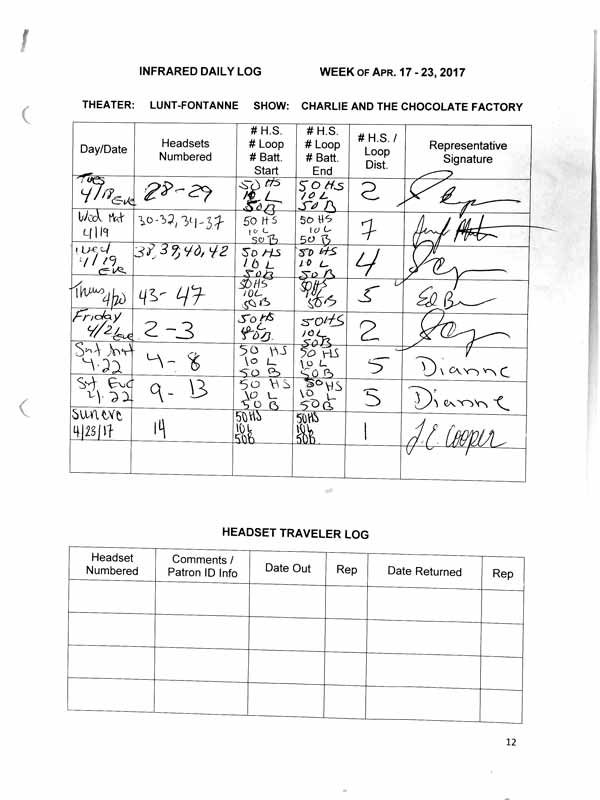 INFRARED DAILY LOG WEEK OF APR. 17 - 23, 2017
THEATER: LUNT-FONTANNE SHOW: CHARLIE AND THE CHOCOLATE FACTORY
Day/Date Headsets Numbered # H.S. # Loop # Batt. Start # H.S. # Loop # Batt. End # H.S. / Loop Dist. Representative Signature
Tues 4/18 Eve 28-29 50 HS 10 L 50 B 50 HS 10 L 50 B 2
Wed Mat 4/19 30-32, 34-37 50 HS 10 L 50 B 50 HS 10 L 50 B 7
Wed 4/19 Eve 38, 39, 40, 42 50 HS 10 L 50 B 50 HS 10 L 50 B 4
Thurs 4/20 43-47 50HS 10L 50B 50HS 10L 50B 5
Friday 4/21 Eve 2-3 50HS 50B. 50HS 10L 50B 2
Sat Mat 4.22 4-8 50 HS 10 L 50 B 50 HS 10 L 50 B 5 Dianne
Sat Eve 4.22 9-13 50 HS 10 L 50 B 50 HS 10 L 50 B 5 Dianne
Sun eve 4/23/17 14 50HS 10L 50B 50HS 10L 50B. 1 J.E. Cooper
HEADSET TRAVELER LOG
Headset Numbered Comments / Patron ID Info Date Out Rep Date Returned Rep
12